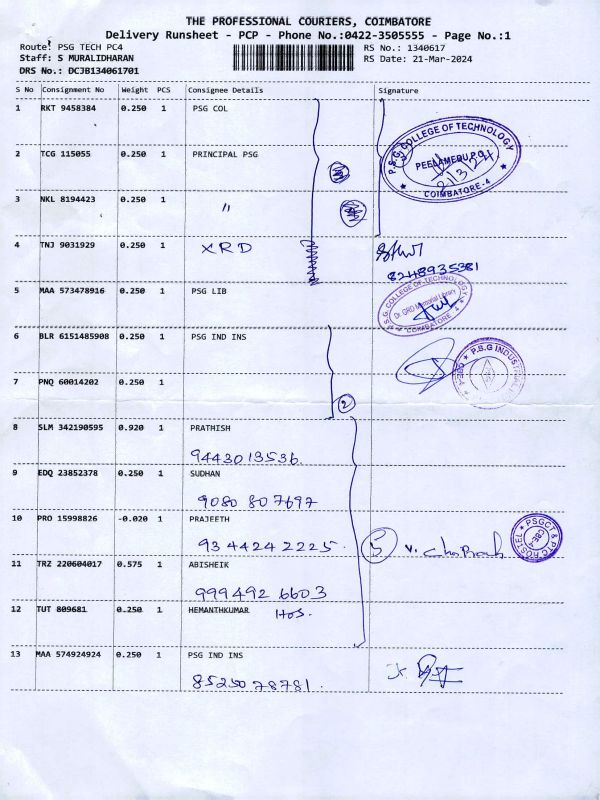 THE PROFESSIONAL COURIERS, COIMBATORE
Delivery Runsheet - PCP - Phone No.:0422-3505555 - Page No.:1
Route: PSG TECH PC4 RS No.: 1340617
Staff: S MURALIDHARAN RS Date: 21-Mar-2024
DRS No.: DCJB134061701
S No Consignment No Weight PCS Consignee Details Signature
1 RKT 9458384 0.250 1 PSG COL
P.S.G COLLEGE OF TECHNOLOGY
PEELAMEDU.P.O
21/3/24
COIMBATORE-4
2 TCG 115055 0.250 1 PRINCIPAL PSG
3 NKL 8194423 0.250 1 "
4 TNJ 9031929 0.250 1 XRD
8248935381
5 MAA 573478916 0.250 1 PSG LIB
P.S.G. COLLEGE OF TECHNOLOGY
Dr. GRD Memorial Library
COIMBATORE
6 BLR 6151485908 0.250 1 PSG IND INS
P.S.G INDUSTRIAL
7 PNQ 60014202 0.250 1
2
8 SLM 342190595 0.920 1 PRATHISH
9443013536
9 EDQ 23852378 0.250 1 SUDHAN
9080 807697
10 PRO 15998826 -0.020 1 PRAJEETH
93 44242 2225. 5
PSGCT & PTC HOSTEL
CBE-4
11 TRZ 220604017 0.575 1 ABISHEIK
999492 6603
12 TUT 809681 0.250 1 HEMANTHKUMAR Hos.
13 MAA 574924924 0.250 1 PSG IND INS
85250 78781.